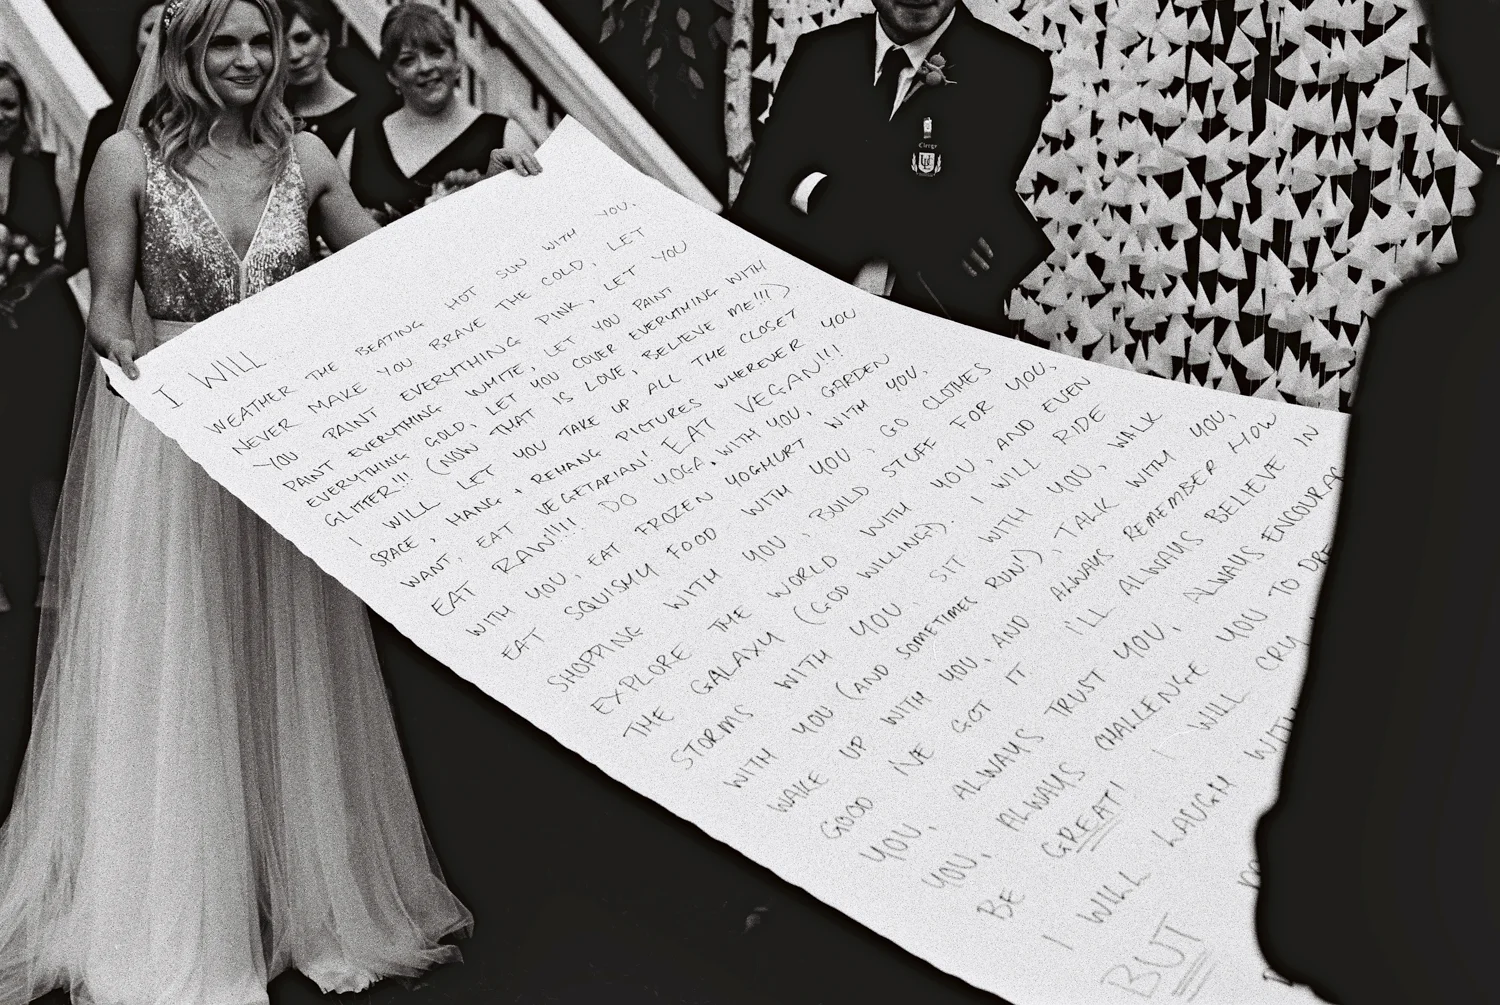 I WILL.....
WEATHER THE BEATING HOT SUN WITH YOU.
NEVER MAKE YOU BRAVE THE COLD, LET
YOU PAINT EVERYTHING PINK, LET YOU
PAINT EVERYTHING WHITE, LET YOU PAINT
EVERYTHING GOLD, LET YOU COVER EVERYTHING WITH
GLITTER!!! (NOW THAT IS LOVE, BELIEVE ME!!!)
I WILL LET YOU TAKE UP ALL THE CLOSET
SPACE, HANG + REHANG PICTURES WHEREVER YOU
WANT, EAT VEGETARIAN! EAT VEGAN!!!!
EAT RAW!!!!! DO YOGA WITH YOU, GARDEN
WITH YOU, EAT FROZEN YOGHURT WITH YOU,
EAT SQUISHY FOOD WITH YOU, GO CLOTHES
SHOPPING WITH YOU, BUILD STUFF FOR YOU,
EXPLORE THE WORLD WITH YOU, AND EVEN
THE GALAXY (GOD WILLING). I WILL RIDE
STORMS WITH YOU, SIT WITH YOU, WALK
WITH YOU (AND SOMETIMES RUN!), TALK WITH YOU,
WAKE UP WITH YOU, AND ALWAYS REMEMBER HOW
GOOD I'VE GOT IT. I'LL ALWAYS BELIEVE IN
YOU, ALWAYS TRUST YOU, ALWAYS ENCOURAG
YOU, ALWAYS CHALLENGE YOU TO
BE GREAT! I WILL CRY
I WILL LAUGH WITH
BUT
Clergy